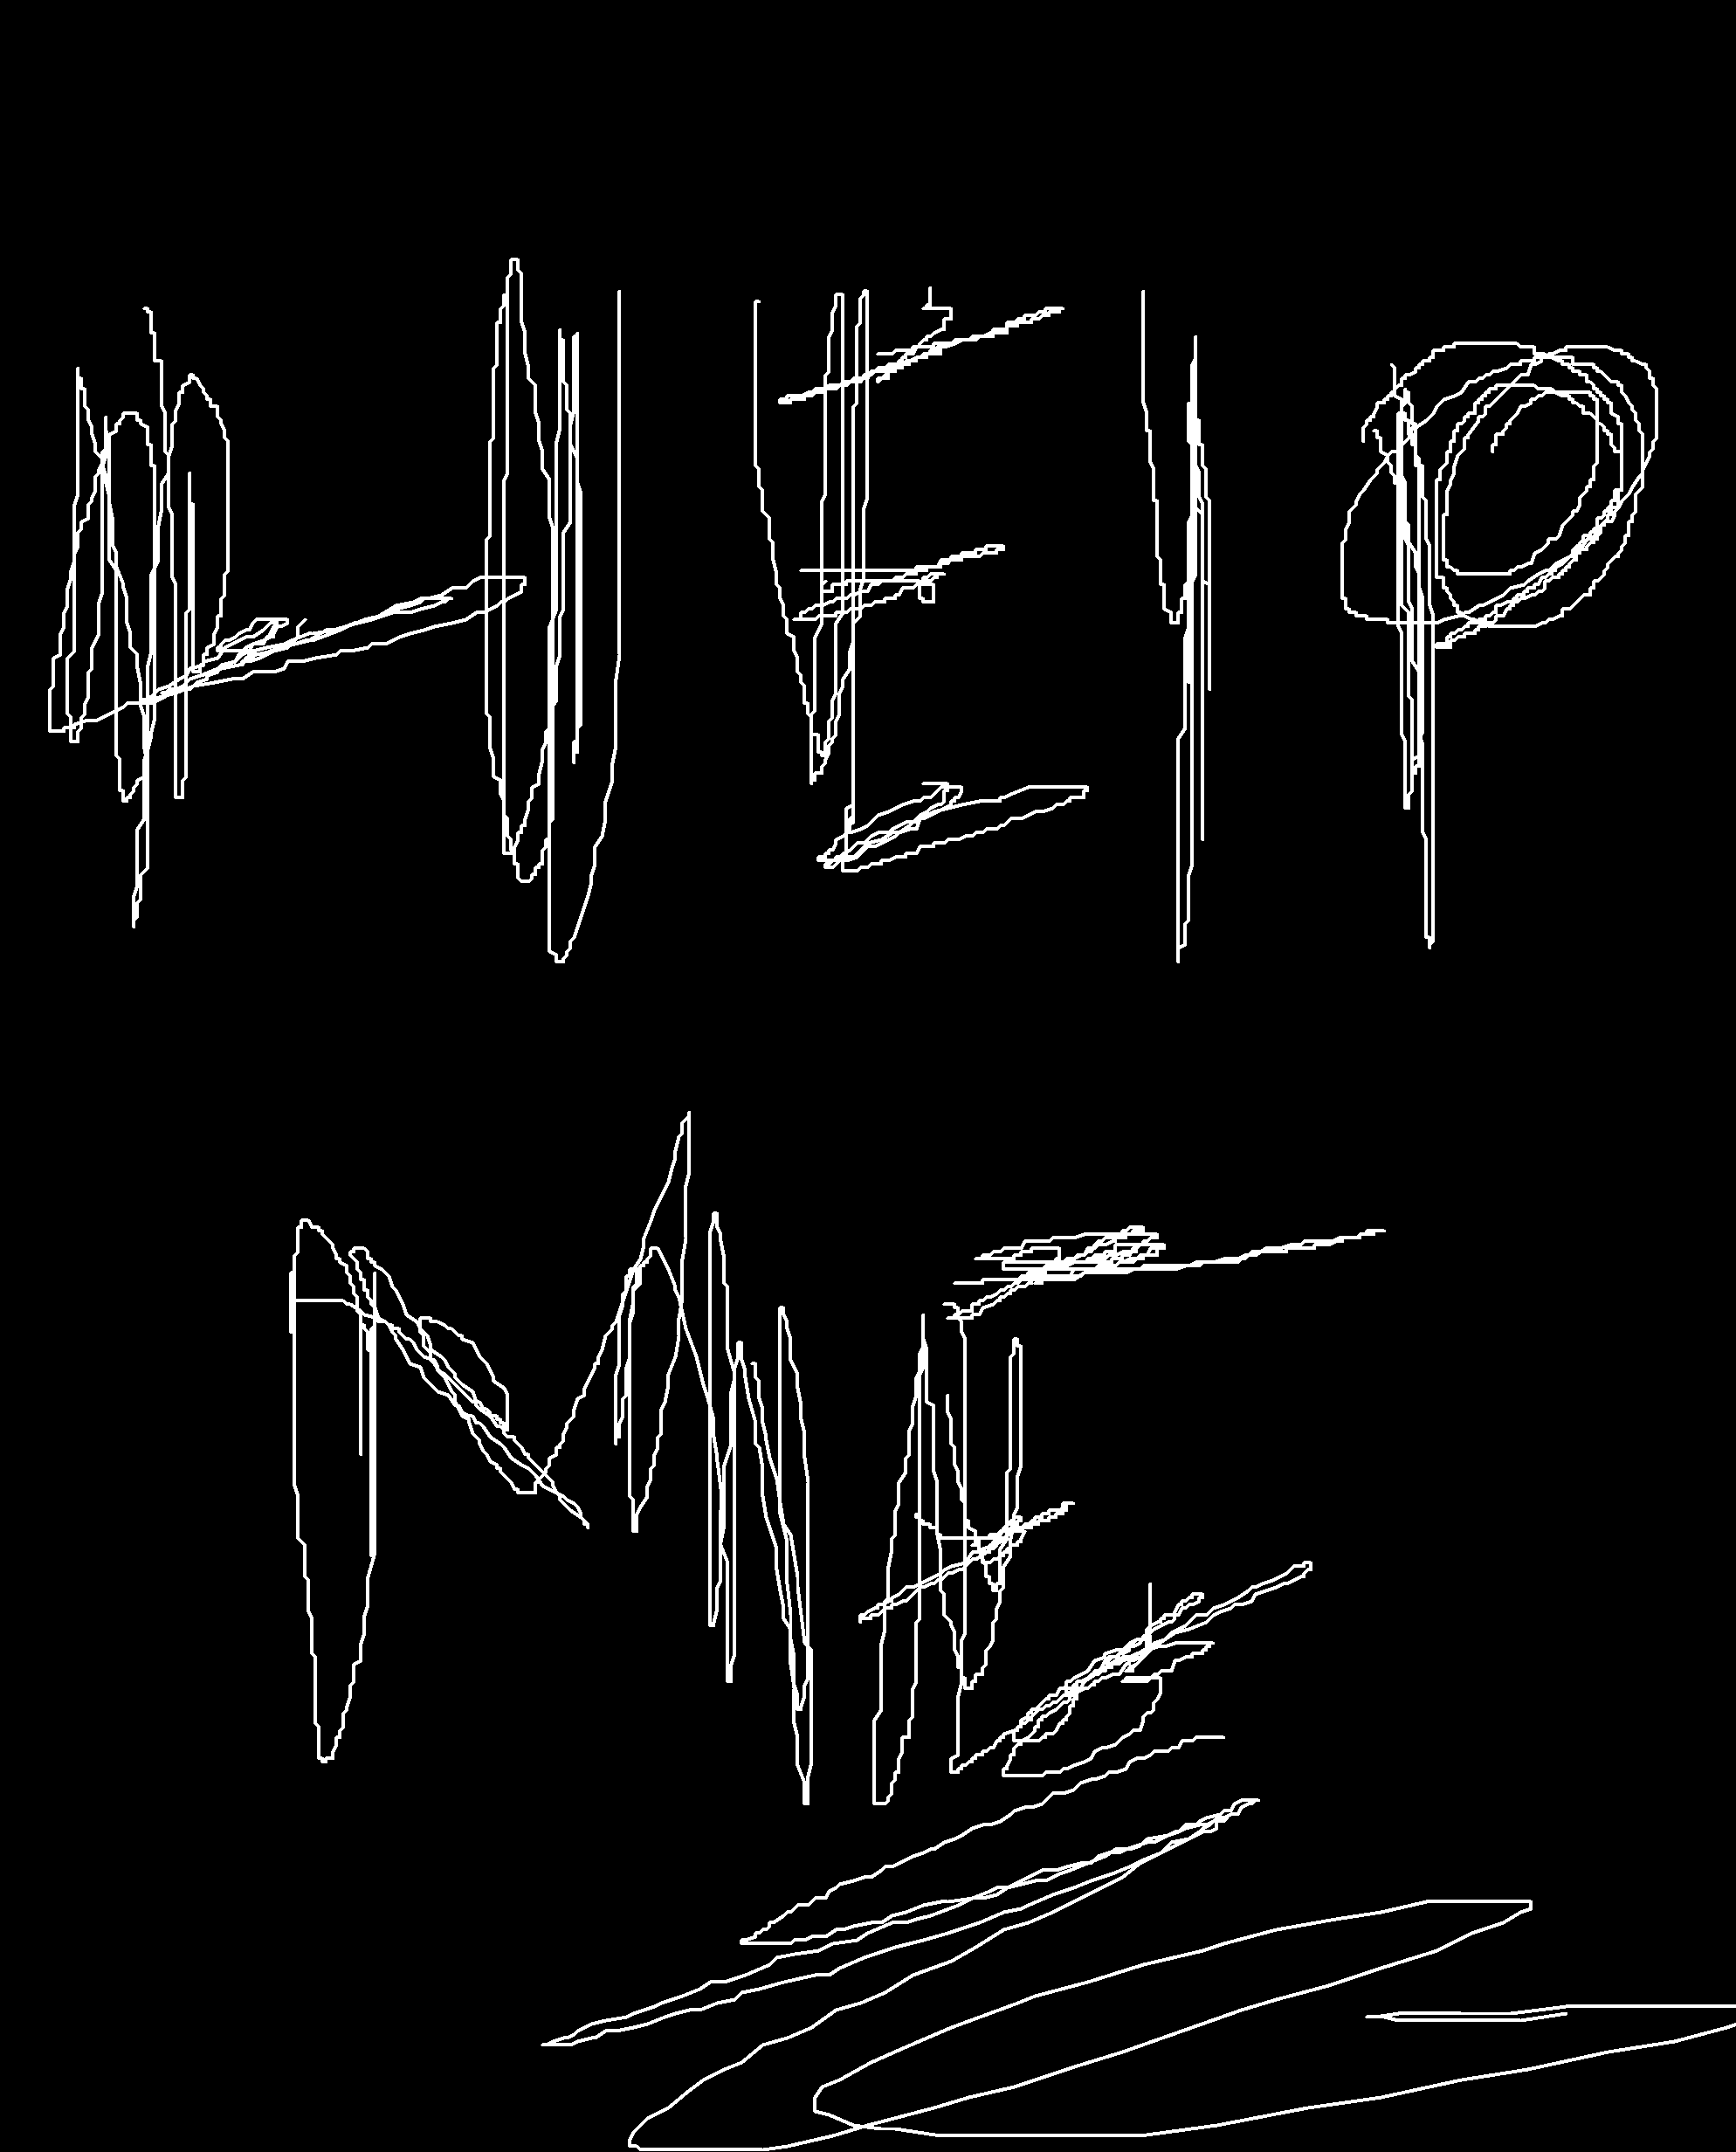 HEIP
ME